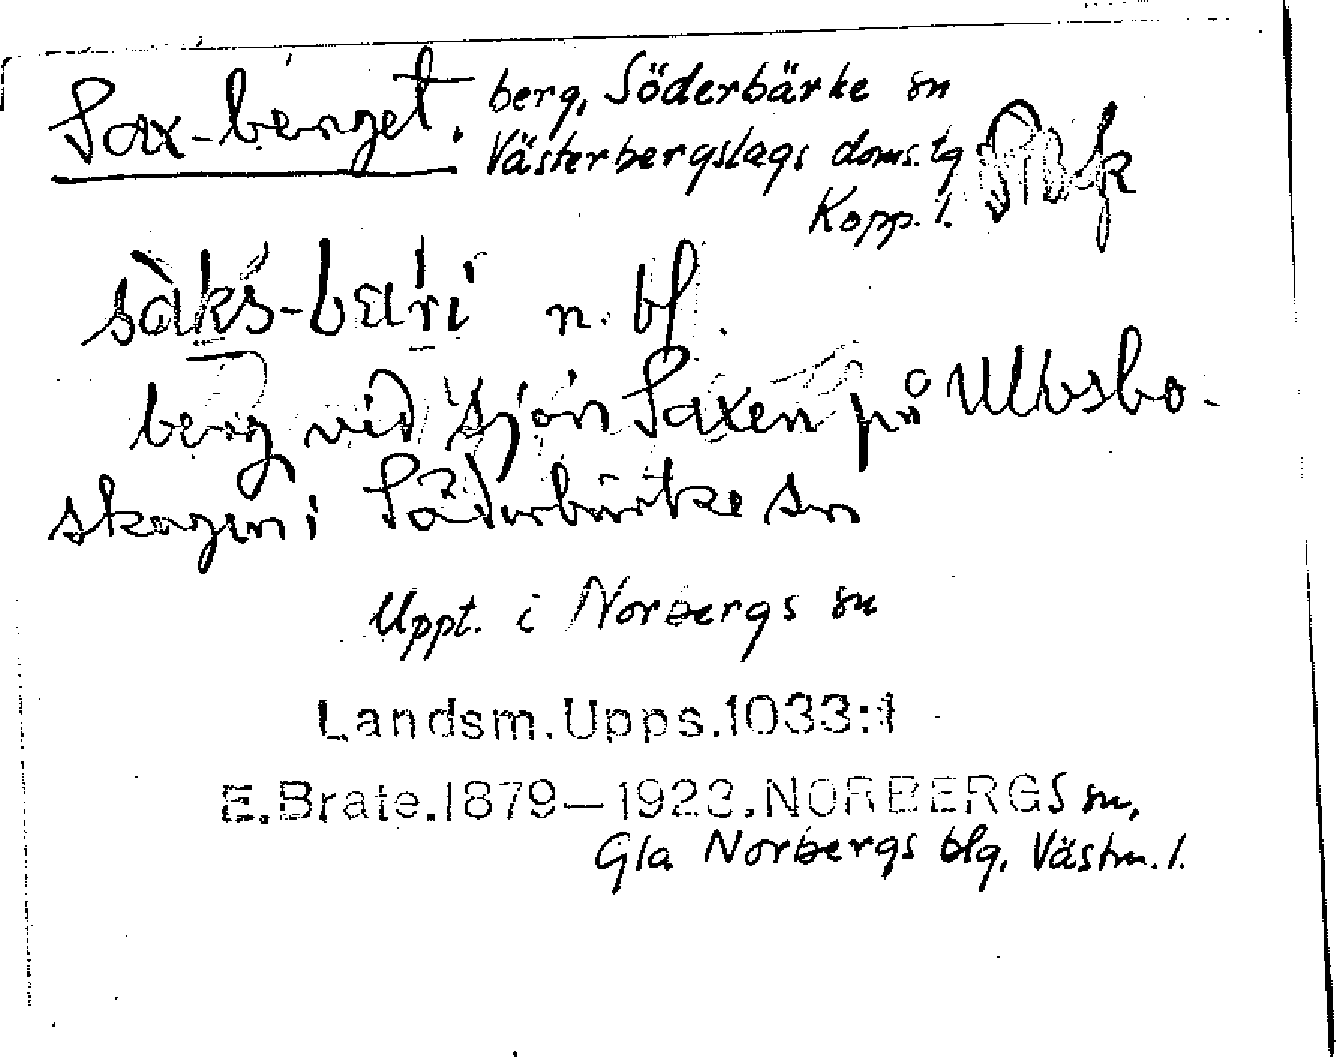 Sax-berget. berg, Söderbärke sn
Västerbergslags doms. tg
Kopp. l.
sàks-bæri n. bf.
berg vid sjön Saxen på Ulvsbo-
skogen i Söderbärke sn
Uppt. i Norbergs sn
Landsm.Upps.1033:1
E.Brate.1879–1922.NORBERGS sn,
Gla Norbergs blg, Västm. l.